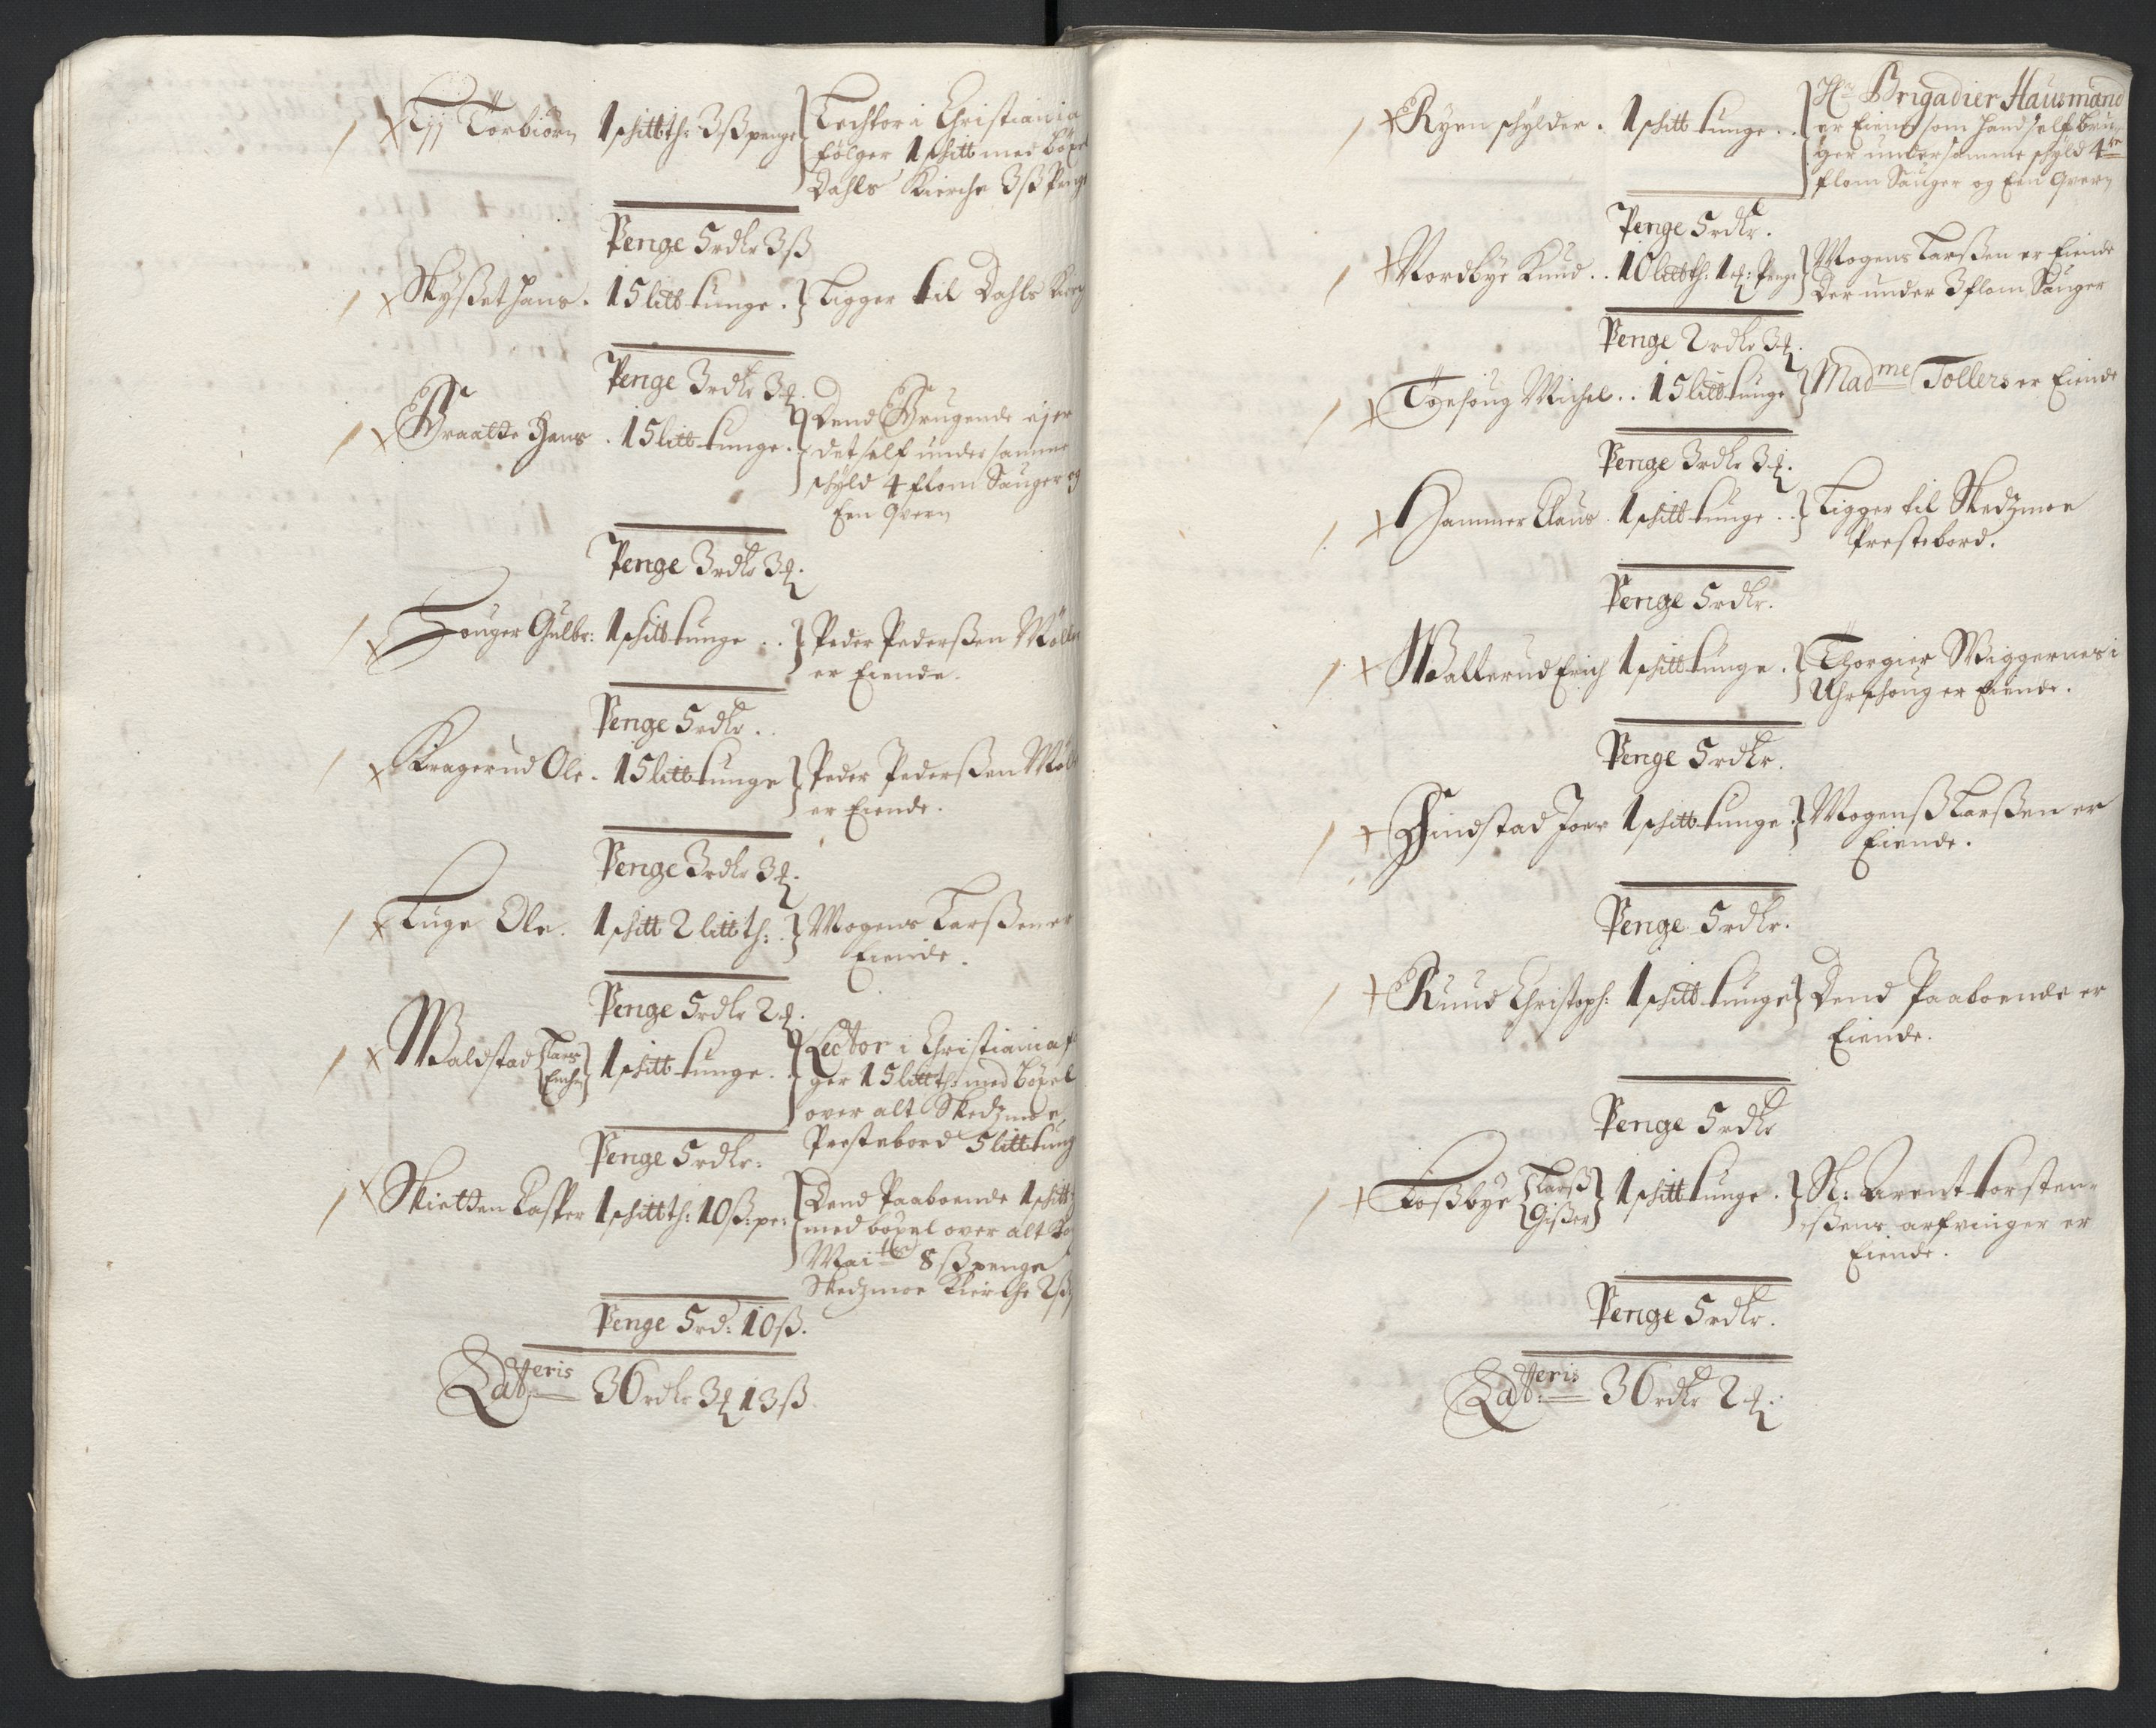 Ejj Torbiörn 1 schitt th: 3 ß penge
Lechtor i Christiania
følger 1 schitt med böxel
Dahls Kierche 3 ß Penge
Penge 5 rdlr 3 ß
Skÿßet Hans . 15 litt tunge .
Ligger til Dahls Kierch
Penge 3 rdlr 3 ꝗ.
Braatte Hans . 15 litt tunge .
Dend Brugende ejer
det self under samme
schÿld 4 flom Sauger og
Een Qvern
Penge 3 rdlr 3 ꝗ.
Houger Gulbr: 1 schitt tunge . .
Peder Pederßen Möller
er Eiende.
Penge 5 rdlr .
Kragerud Ole . 15 litt tunge
Peder Pederßen Möll
er Eiende.
Penge 3 rdlr 3 ꝗ.
Luge Ole . 1 schitt 2 litt th: .
Mogens Larßen er
Eiende .
Penge 5 rdlr 2 ꝗ.
Waldstad Lars Enche 1 schitt tunge .
Lector i Christiania f
ger 15 litt th: med böxel
over alt Skedzmoe
Prestebord 5 litt tung
Penge 5 rdlr.
Skietten Casper 1 schitt th: 10 ß: pe:
Dend Paaboende 1 schitt
med böxel over alt
Mai 8 ß penge
Skedzmoe Kierche 2 ß
Penge 5 rd: 10 ß.
Latteris 36 rdlr 3 ꝗ 13 ß
Ryen schÿlder . 1 schitt tunge . .
Hr Brigadier Hausmand
er Eiende som hand self bru
ger under samme schÿld 4re
flom Sauger og Een Qvern
Penge 5 rdlr.
Nordbÿe Knud . . 10 litt th: 1 ꝗ: Penge
Mogens Larßen er Eiende
Der under 3 flom Sauger
Penge 2 rdlr 3 ꝗ.
Töyehoug Michel . . 15 litt tunge
Madme Tollers er Eiende
Penge 3 rdlr 3 ꝗ.
Hammer Claus . 1 schitt tunge . .
Ligger til Skedzmoe
Prestebord.
Penge 5 rdlr.
Wallerud Erich 1 schitt tunge .
Thorgier Wiggernes i
Uhrschoug er Eiende.
Penge 5 rdlr.
Hindstad Joen 1 schitt tunge .
Mogenß Larßen er
Eiende.
Penge 5 rdlr.
Ruud Christoph: 1 schitt tunge
Dend Paaboende er
Eiende.
Penge 5 rdlr
Foßbÿe Larß Gißer 1 schitt tunge .
Sl: Arent torsten-
ßens arfvinger er
Eiende.
Penge 5 rdlr.
Latteris 36 rdlr 2 ꝗ.